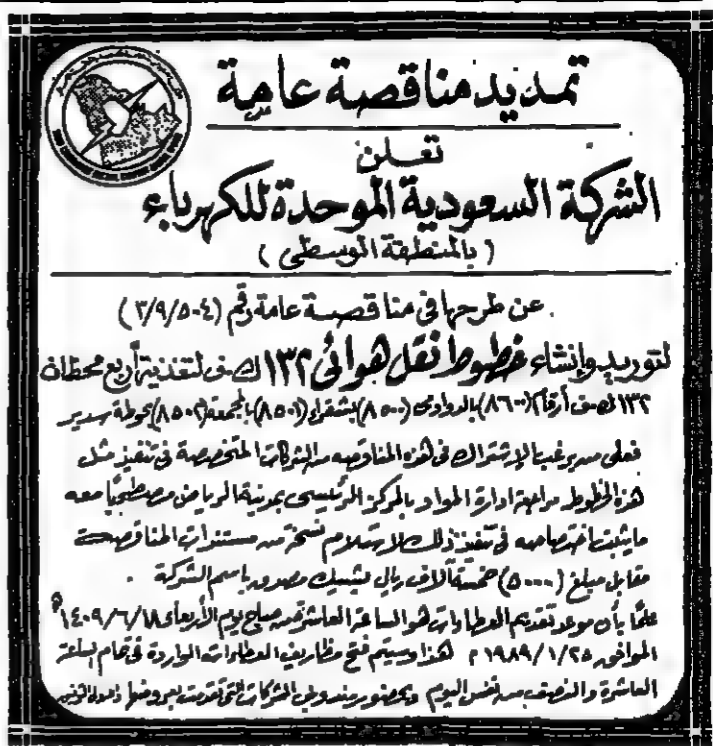 تمديد مناقصة عامة
تعلن
الشركة السعودية الموحدة للكهرباء
( بالمنطقة الوسطى )
عن طرحها في مناقصة عامة رقم (٣/٩/٥٠٤)
لتوريد وإنشاء خطوط نقل هوائي ١٣٢ ك.ف لتغذية أربع محطات
١٣٢ ك.ف أرقام (٨٦٠٠) بالدوادمي (٨٥٠٠) بشقراء (٨٥٠١) بالمجمعة (٨٥٠٢) بحوطة سدير
فعلى من يرغب الإشتراك في هذه المناقصه من الشركات المتخصصة في تنفيذ مثل
هذه الخطوط مراجعة ادارة المواد بالمركز الرئيسي بمدينة الرياض مصطحباً معه
مايثبت اختصاصه في تنفيذ ذلك لاستلام نسخة من مستندات المناقصة
مقابل مبلغ (٥٠٠٠) خمسة آلاف ريال بشيك مصدق باسم الشركة .
علماً بأن موعد تقديم العطاءات هو الساعة العاشرة من صباح يوم الأربعاء ١٤٠٩/٦/١٨ه
الموافق ١٩٨٩/١/٢٥ م هذا وسيتم فتح مظاريف العطاءات الواردة في تمام الساعة
العاشرة والنصف من نفس اليوم وبحضور مندوبي الشركات التي تقدمت بعروضها